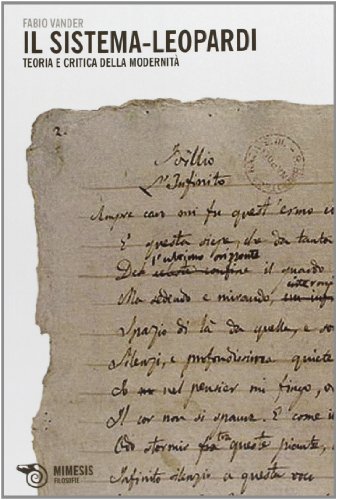 FABIO VANDER
IL SISTEMA-LEOPARDI
TEORIA E CRITICA DELLA MODERNITÀ
2.
Idillio
L'Infinito
Sempre caro mi fu quest'ermo
E questa siepe, che da tanta
l'ultimo orizzonte
De confine il guardo
Ma sedendo e mirando,
Spazio di là da quella, e so
Silenzi, e profondissima quiete
Io nel pensier mi fingo, o
Il cor non si spaura. E come i
Odo stormir fra queste piante,
Infinito silenzio a questa voce
MIMESIS
FILOSOFIE